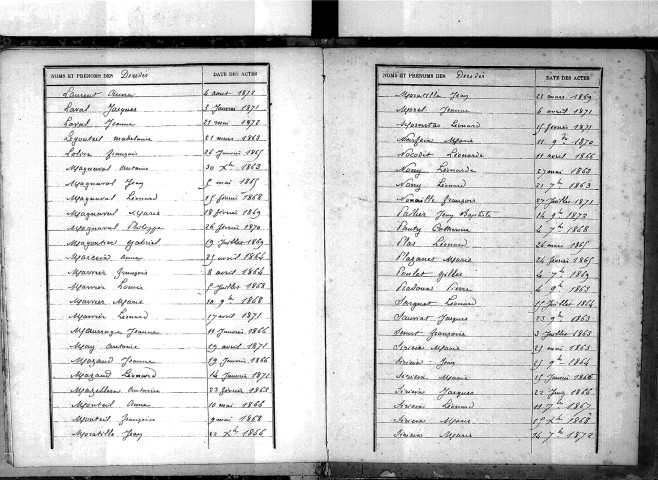 NOMS ET PRÉNOMS DES Décédés DATE DES ACTES
Laurent Anne 4 août 1872
Laval Jacques 3 Janvier 1871
Laval Jeanne 21 mai 1872
Legouteil madelaine 21 mars 1863
Lolive François 26 Janvier 1865
Magnaval Antoine 30 Xbre 1863
Magnaval Jean 5 mai 1865
Magnaval Léonard 15 février 1868
Magnaval Marie 18 février 1869
Magnaval Philippe 26 février 1870
Magoutier Gabriel 19 Juillet 1869
Marcein Anne 25 avril 1864
Marrier François 8 avril 1864
Marrier Louis 5 Juillet 1868
Marrier Marie 10 9bre 1868
Marrier Léonard 17 avril 1871
Maurrange Jeanne 11 Janvier 1866
May Antoine 19 avril 1871
Mazaud Jeanne 19 Janvier 1866
Mazaud Léonard 14 Janvier 1871
Mazelleau Antoine 22 février 1863
Monteil Anne 10 mai 1866
Monteil Françoise 9 mai 1868
Moratille Jean 22 Xbre 1866
NOMS ET PRÉNOMS DES Décédés DATE DES ACTES
Moratille Jean 21 mars 1869
Morel Jeanne 6 avril 1871
Léonard 15 février 1871
Marie 11 9bre 1870
Nocodit Léonarde 11 avril 1866
Nony Léonarde 27 mai 1863
Nony Léonard 21 7bre 1863
Nouaille François 27 Juillet 1871
Pallier Jean Baptiste 14 9bre 1872
Pauty Catherine 4 7bre 1868
Plas Léonard 26 mars 1865
Plazanet Marie 24 février 1865
Poulet Gilles 4 7bre 1869
Radoux Pierre 4 9bre 1863
Sargnat Léonard 15 Juillet 1864
Sauviat Jacques 23 9bre 1863
Senut Françoise 3 Juillet 1863
Sirieix Marie 21 mai 1863
Sirieix Jean 25 9bre 1864
Sirieix Marie 15 Janvier 1866
Sirieix Jacques 22 Juin 1866
Sirieix Léonard 11 7bre 1867
Sirieix Marie 15 Xbre 1868
Sirieix Marie 24 7bre 1872